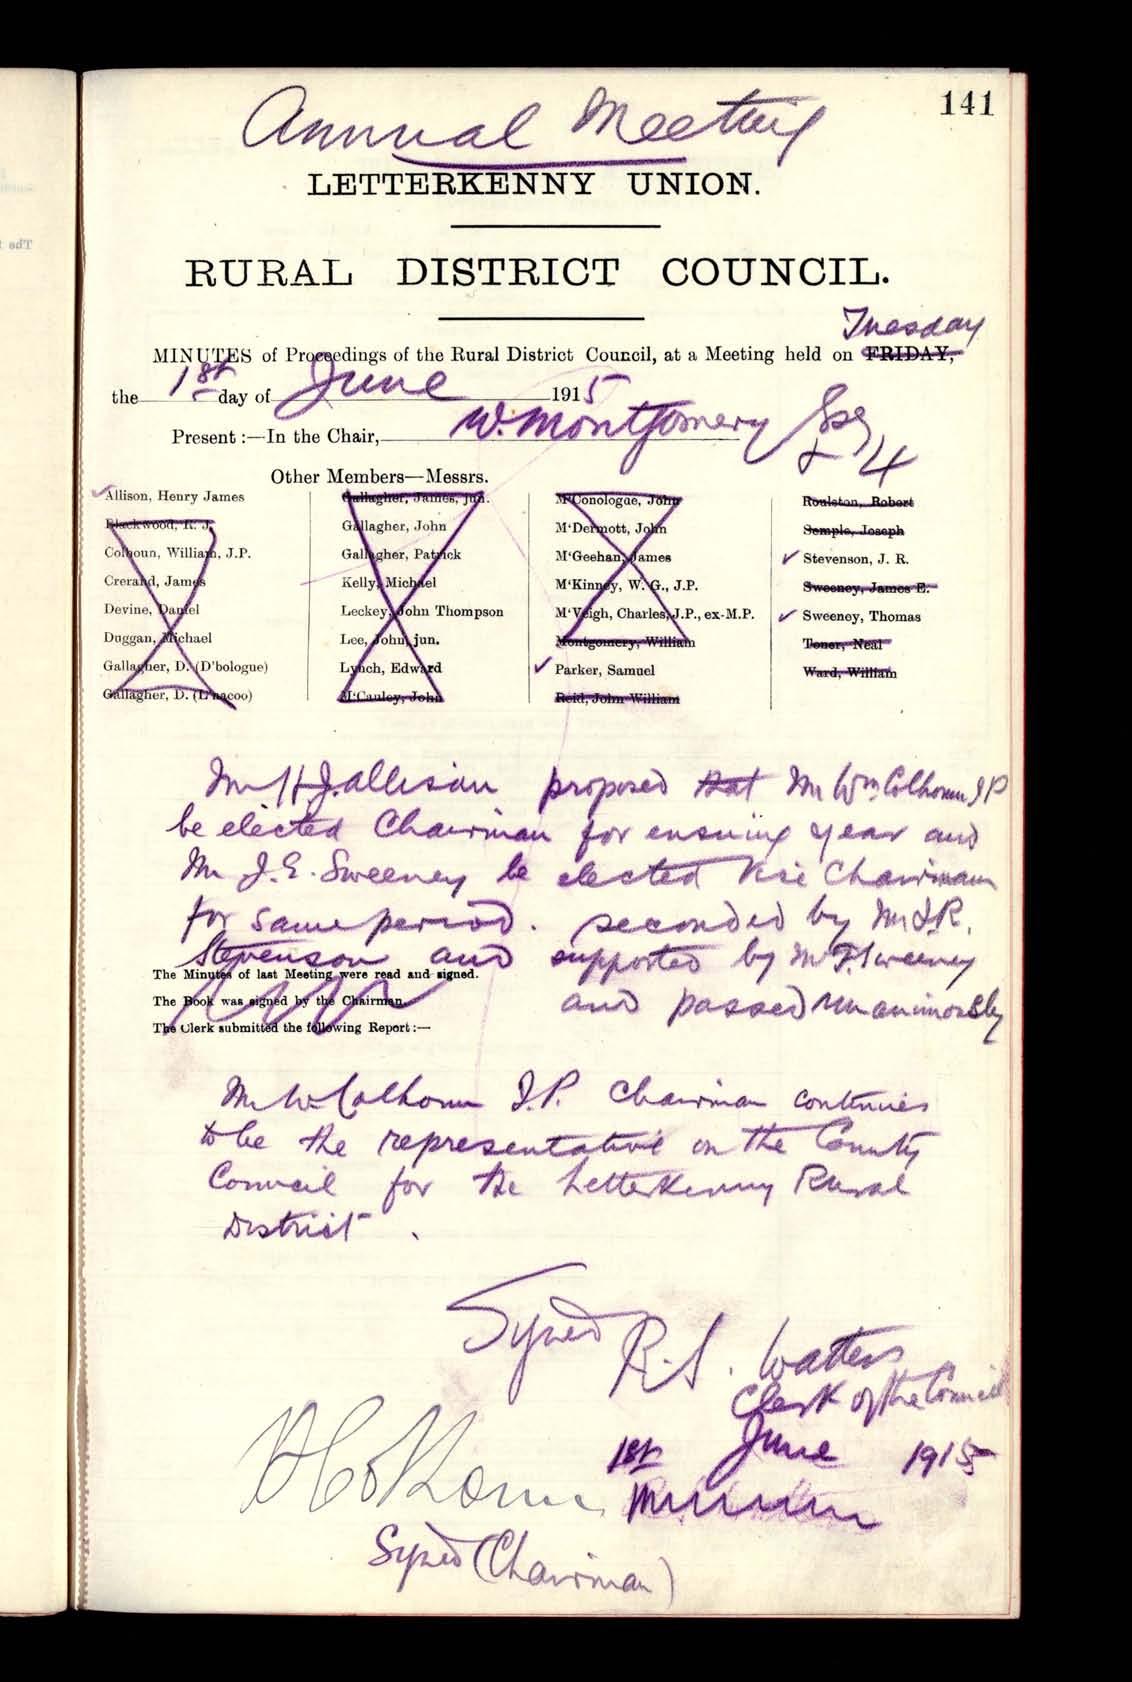 141
Annual Meeting
LETTERKENNY UNION.
RURAL DISTRICT COUNCIL.
Tuesday
MINUTES of Proceedings of the Rural District Council, at a Meeting held on FRIDAY,
the 1st day of June 1915
Present :—In the Chair, W. Montgomery Esq
& 4
Other Members—Messrs.
Allison, Henry James
Blackwood, R. J.
Colhoun, William, J.P.
Crerand, James
Devine, Daniel
Duggan, Michael
Gallagher, D. (D'bologue)
Gallagher, D. (L'nacoo)
Gallagher, James, jun.
Gallagher, John
Gallagher, Patrick
Kelly, Michael
Leckey, John Thompson
Lee, John, jun.
Lynch, Edward
M'Cauley, John
M'Conologue, John
M'Dermott, John
M'Geehan, James
M'Kinney, W. G., J.P.
M'Veigh, Charles, J.P., ex-M.P.
Montgomery, William
Parker, Samuel
Reid, John William
Roulston, Robert
Semple, Joseph
Stevenson, J. R.
Sweeney, James E.
Sweeney, Thomas
Toner, Neal
Ward, William
Mr H. J. Allison proposed that Mr Wm Colhoun J P
be elected Chairman for ensuing year and
Mr J. E. Sweeney be elected Vice Chairman
for same period. seconded by Mr J. R.
Stevenson and supported by Mr T. Sweeney
The Minutes of last Meeting were read and signed.
The Book was signed by the Chairman.
and passed unanimously
The Clerk submitted the following Report :—
Mr W. Colhoun J.P. Chairman continues
to be the representative on the County
Council for the Letterkenny Rural
District.
Signed R. S. Watters
Clerk of the Council
1st June 1915
Signed (Chairman)